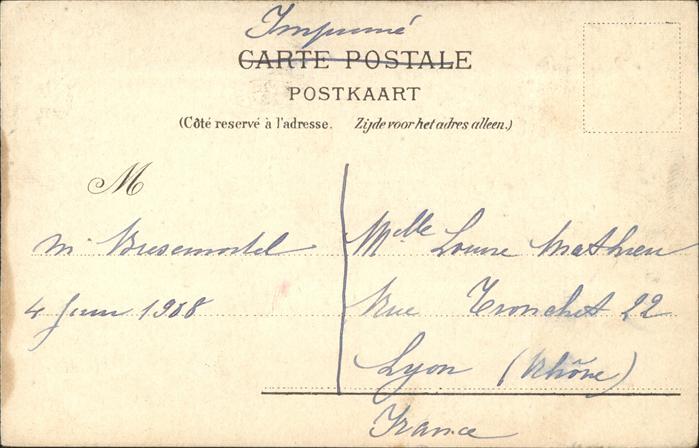 Imprimé
CARTE POSTALE
POSTKAART
(Côté reservé à l'adresse. Zijde voor het adres alleen.)
M
m
4 Juin 1908
Melle Louise Mathieu
Rue Tronchet 22
Lyon (Rhône)
France